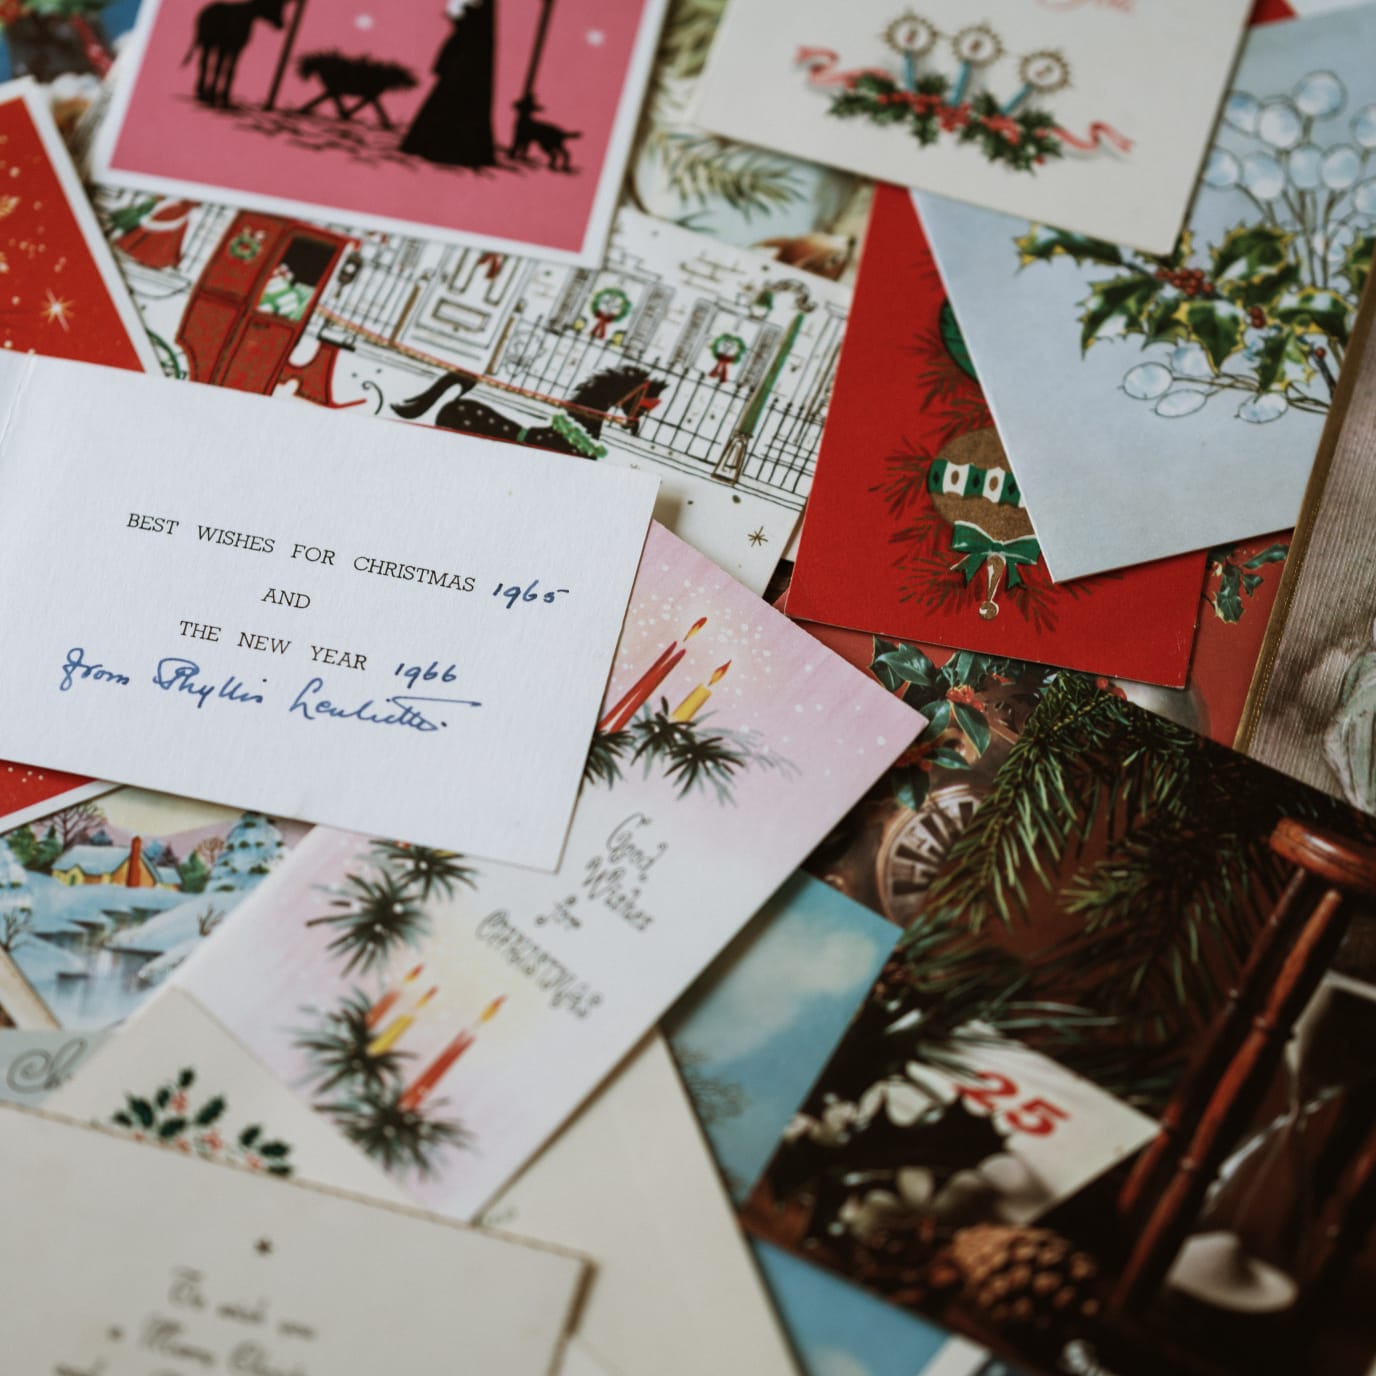 BEST WISHES FOR CHRISTMAS 1965
AND
THE NEW YEAR 1966
from Phyllis
Good
Wishes
for
CHRISTMAS
25
To wish you
Merry